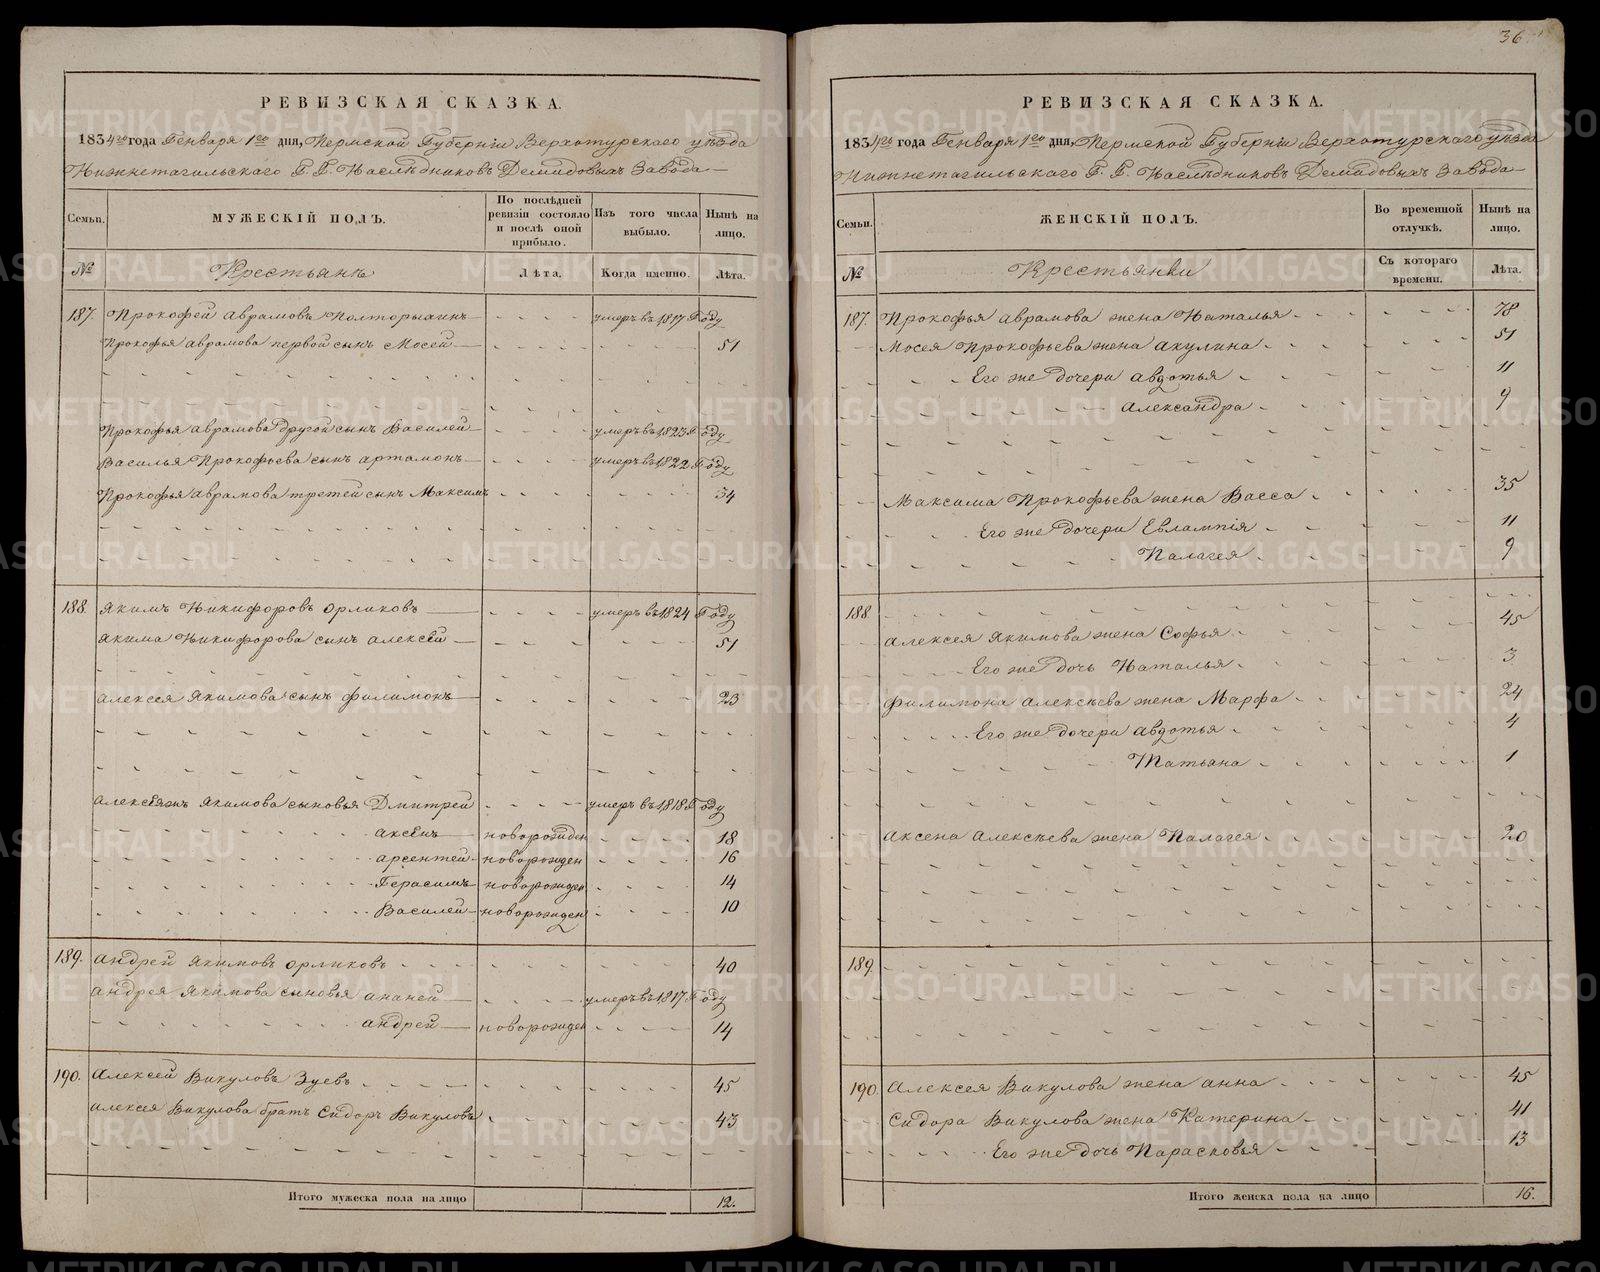 РЕВИЗСКАЯ СКАЗКА.
1834го года Генваря 1го дня, Пермской Губерніи Верхотурскаго уѣзда
Нижнетагильскаго Г. Г. Наслѣдниковъ Демидовыхъ Завода
Семьи.
МУЖЕСКІЙ ПОЛЪ.
По послѣдней ревизіи состояло и послѣ оной прибыло.
Изъ того числа выбыло.
Нынѣ на лицо.
№
Крестьянъ
Лѣта.
Когда именно.
Лѣта.
187. Прокофей Аврамовъ Полторыхинъ умеръ въ 1817 Году
Прокофья Аврамова первой сынъ Мосей 51
Прокофья Аврамова другой сынъ Василей умеръ въ 1823 Году
Василья Прокофьева сынъ Артамонъ умеръ въ 1822 Году
Прокофья Аврамова третей сынъ Максимъ 34
188. Якимъ Никифоровъ Орликовъ умеръ въ 1824 Году
Якима Никифорова сынъ Алексѣй 51
Алексея Якимова сынъ Филимонъ 23
Якимова сыновья Дмитрей умеръ въ 1818 Году
Аксенъ новорожден 18
Арсентей новорожден 16
Герасимъ новорожден 14
Василей новорожден 10
189. Андрей Якимовъ Орликовъ 40
Андрея Якимова сыновья Ананей умеръ въ 1817 Году
Андрей новорожден 14
190. Алексей Викуловъ Зуевъ 45
Алексея Викулова братъ Сидоръ Викуловъ 43
Итого мужеска пола на лицо 12.
36
РЕВИЗСКАЯ СКАЗКА.
1834го года Генваря 1го дня, Пермской Губерніи Верхотурскаго уѣзда
Нижнетагильскаго Г. Г. Наслѣдниковъ Демидовыхъ Завода
Семьи.
ЖЕНСКІЙ ПОЛЪ.
Во временной отлучкѣ.
Нынѣ на лицо.
№
Крестьянки
Съ котораго времени.
Лѣта.
187. Прокофья Аврамова жена Наталья 78
Мосея Прокофьева жена Акулина 51
Его же дочери Авдотья 11
Александра 9
Максима Прокофьева жена Васса 35
Его же дочери Евлампія 11
Палагея 9
188.
Алексея Якимова жена Софья 45
Его же дочь Наталья 3
Филимона Алексѣева жена Марфа 24
Его же дочери Авдотья 4
Татьяна 1
Аксена Алексѣева жена Палагея 20
189.
190. Алексея Викулова жена Анна 45
Сидора Викулова жена Катерина 41
Его же дочь Парасковья 13
Итого женска пола на лицо 16.
METRIKI.GASO-URAL.RU